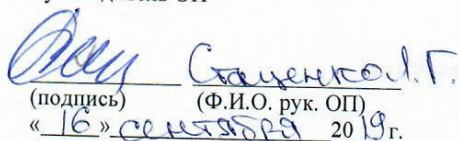 Стаценко Л.Г.
(подпись) (Ф.И.О. рук. ОП)
« 16 » сентября 2019 г.